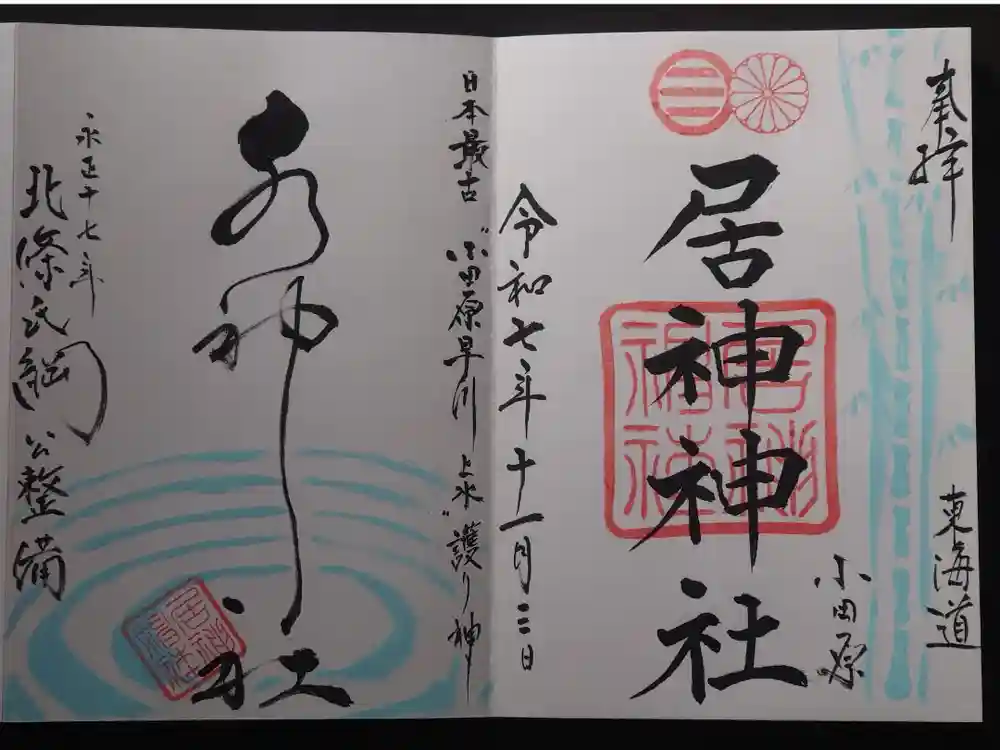 奉拝
東海道
小田原
居神神社
令和七年十一月二日
日本最古"小田原早川上水"護り神
水神社
永正十七年
北條氏綱公整備